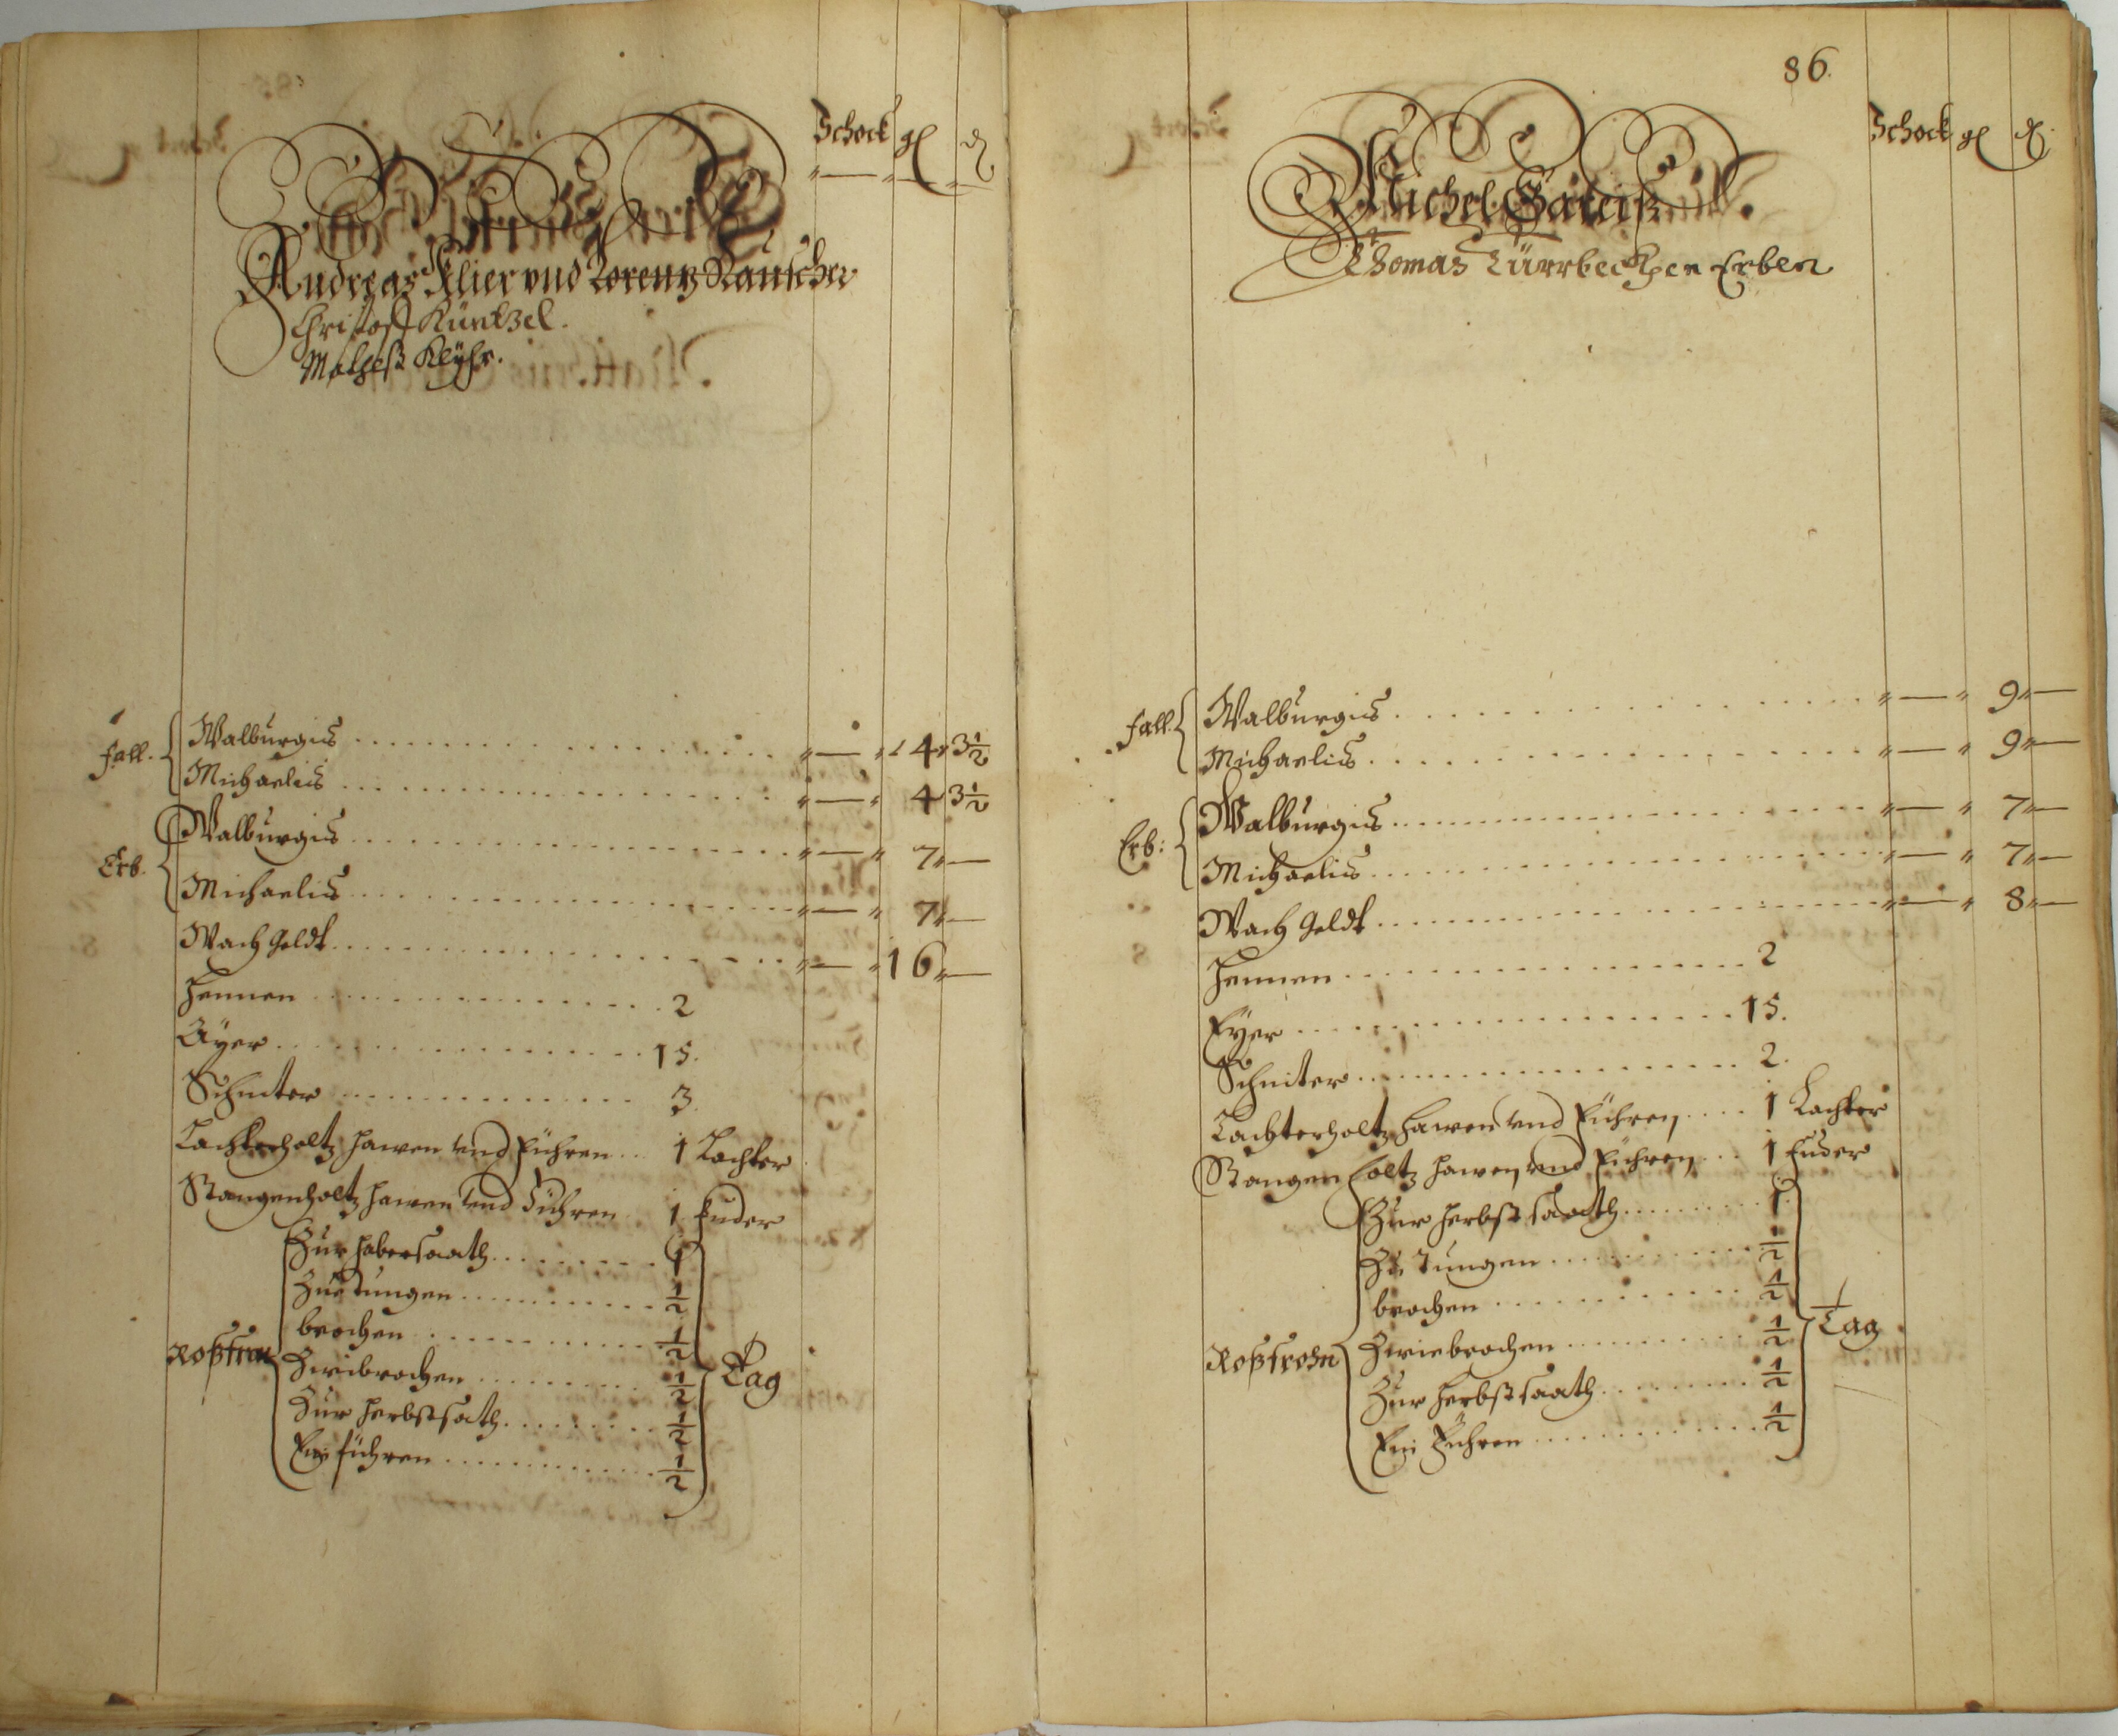 Schock gl ₰
Andreas Klier vnd Lorentz Rauscher
Christoff Küntzel.
Matheß Klyhr.
Fall. Walburgis . . . " — " 4 " 3½
Michaelis . . . " — " 4 3½
Erb. Walburgis . . . " — " 7 " —
Michaelis . . . " — " 7 " —
Wach Geldt . . . " — " 16 " —
Hennen . . . 2
Ayer . . . 15.
Schniter . . . 3
Lachterholtz hawen vnd Führen . . 1 Lachter
Stangenholtz hawen vnd Führen 1 Fuder
Zur habersaath . . . 1
Zue tungen . . . ½
brochen . . . ½
Roßfron Zwibrochen . . . ½ Tag
Zur Herbstsath . . . ½
Ein führen . . . ½
86.
Schock gl ₰
Michel
Thomas Türrbeckhen Erben
Fall. Walburgis . . . " — " 9 " —
Michaelis . . . " — " 9 " —
Erb: Walburgis . . . " — " 7 " —
Michaelis . . . " — " 7 " —
Wach Geldt . . . " — " 8 " —
Hennen . . . 2
Eyer . . . 15.
Schniter . . . 2.
Lachterholtz hawen vnd Führen . . . 1 Lachter
Stangen holtz hawen vnd Führen . . . 1 Fuder
Zur Herbst saath . . . 1
Zu tungen . . . ½
brochen . . . ½
Roßfrohn Zwiebrochen . . . ½ Tag
Zur Herbstsaath . . . ½
Ein Führen . . . ½